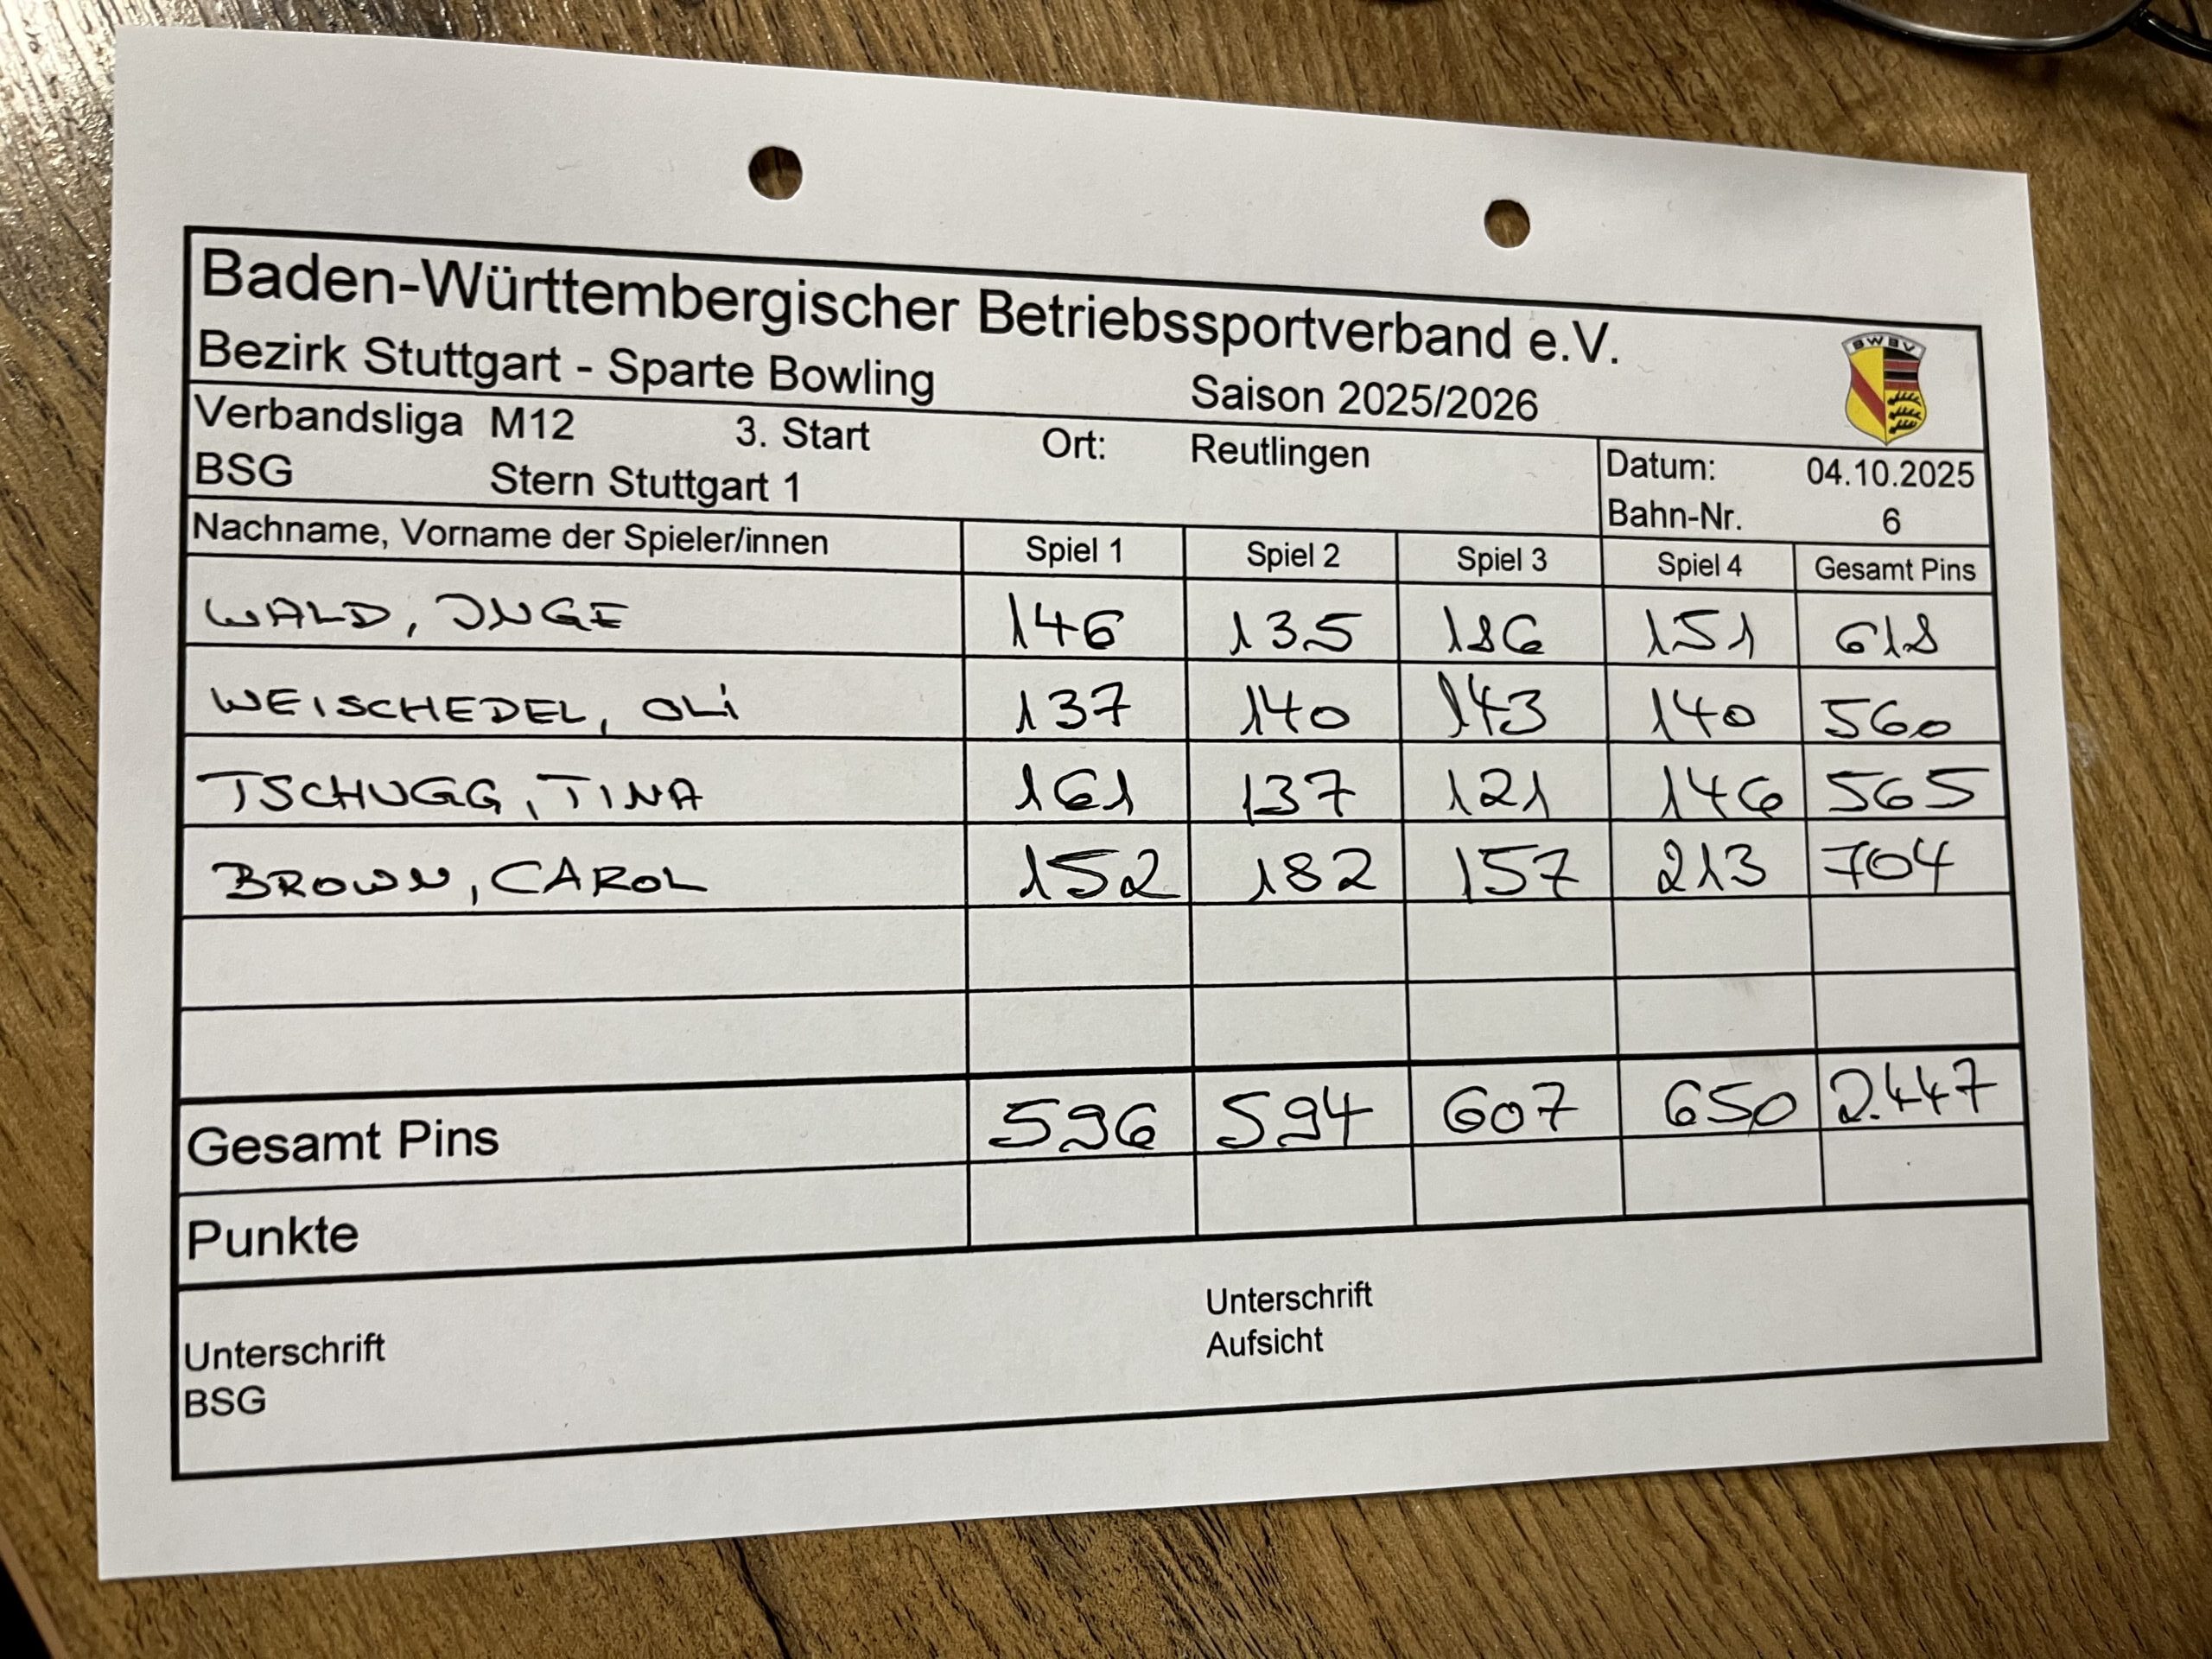 Baden-Württembergischer Betriebssportverband e.V.
Bezirk Stuttgart - Sparte Bowling Saison 2025/2026
BWBV
Verbandsliga M12 3. Start Ort: Reutlingen Datum: 04.10.2025
BSG Stern Stuttgart 1 Bahn-Nr. 6
Nachname, Vorname der Spieler/innen Spiel 1 Spiel 2 Spiel 3 Spiel 4 Gesamt Pins
WALD, INGE 146 135 186 151 618
WEISCHEDEL, OLi 137 140 143 140 560
TSCHUGG, TINA 161 137 121 146 565
BROWN, CAROL 152 182 157 213 704
Gesamt Pins 596 594 607 650 2.447
Punkte
Unterschrift Unterschrift
BSG Aufsicht